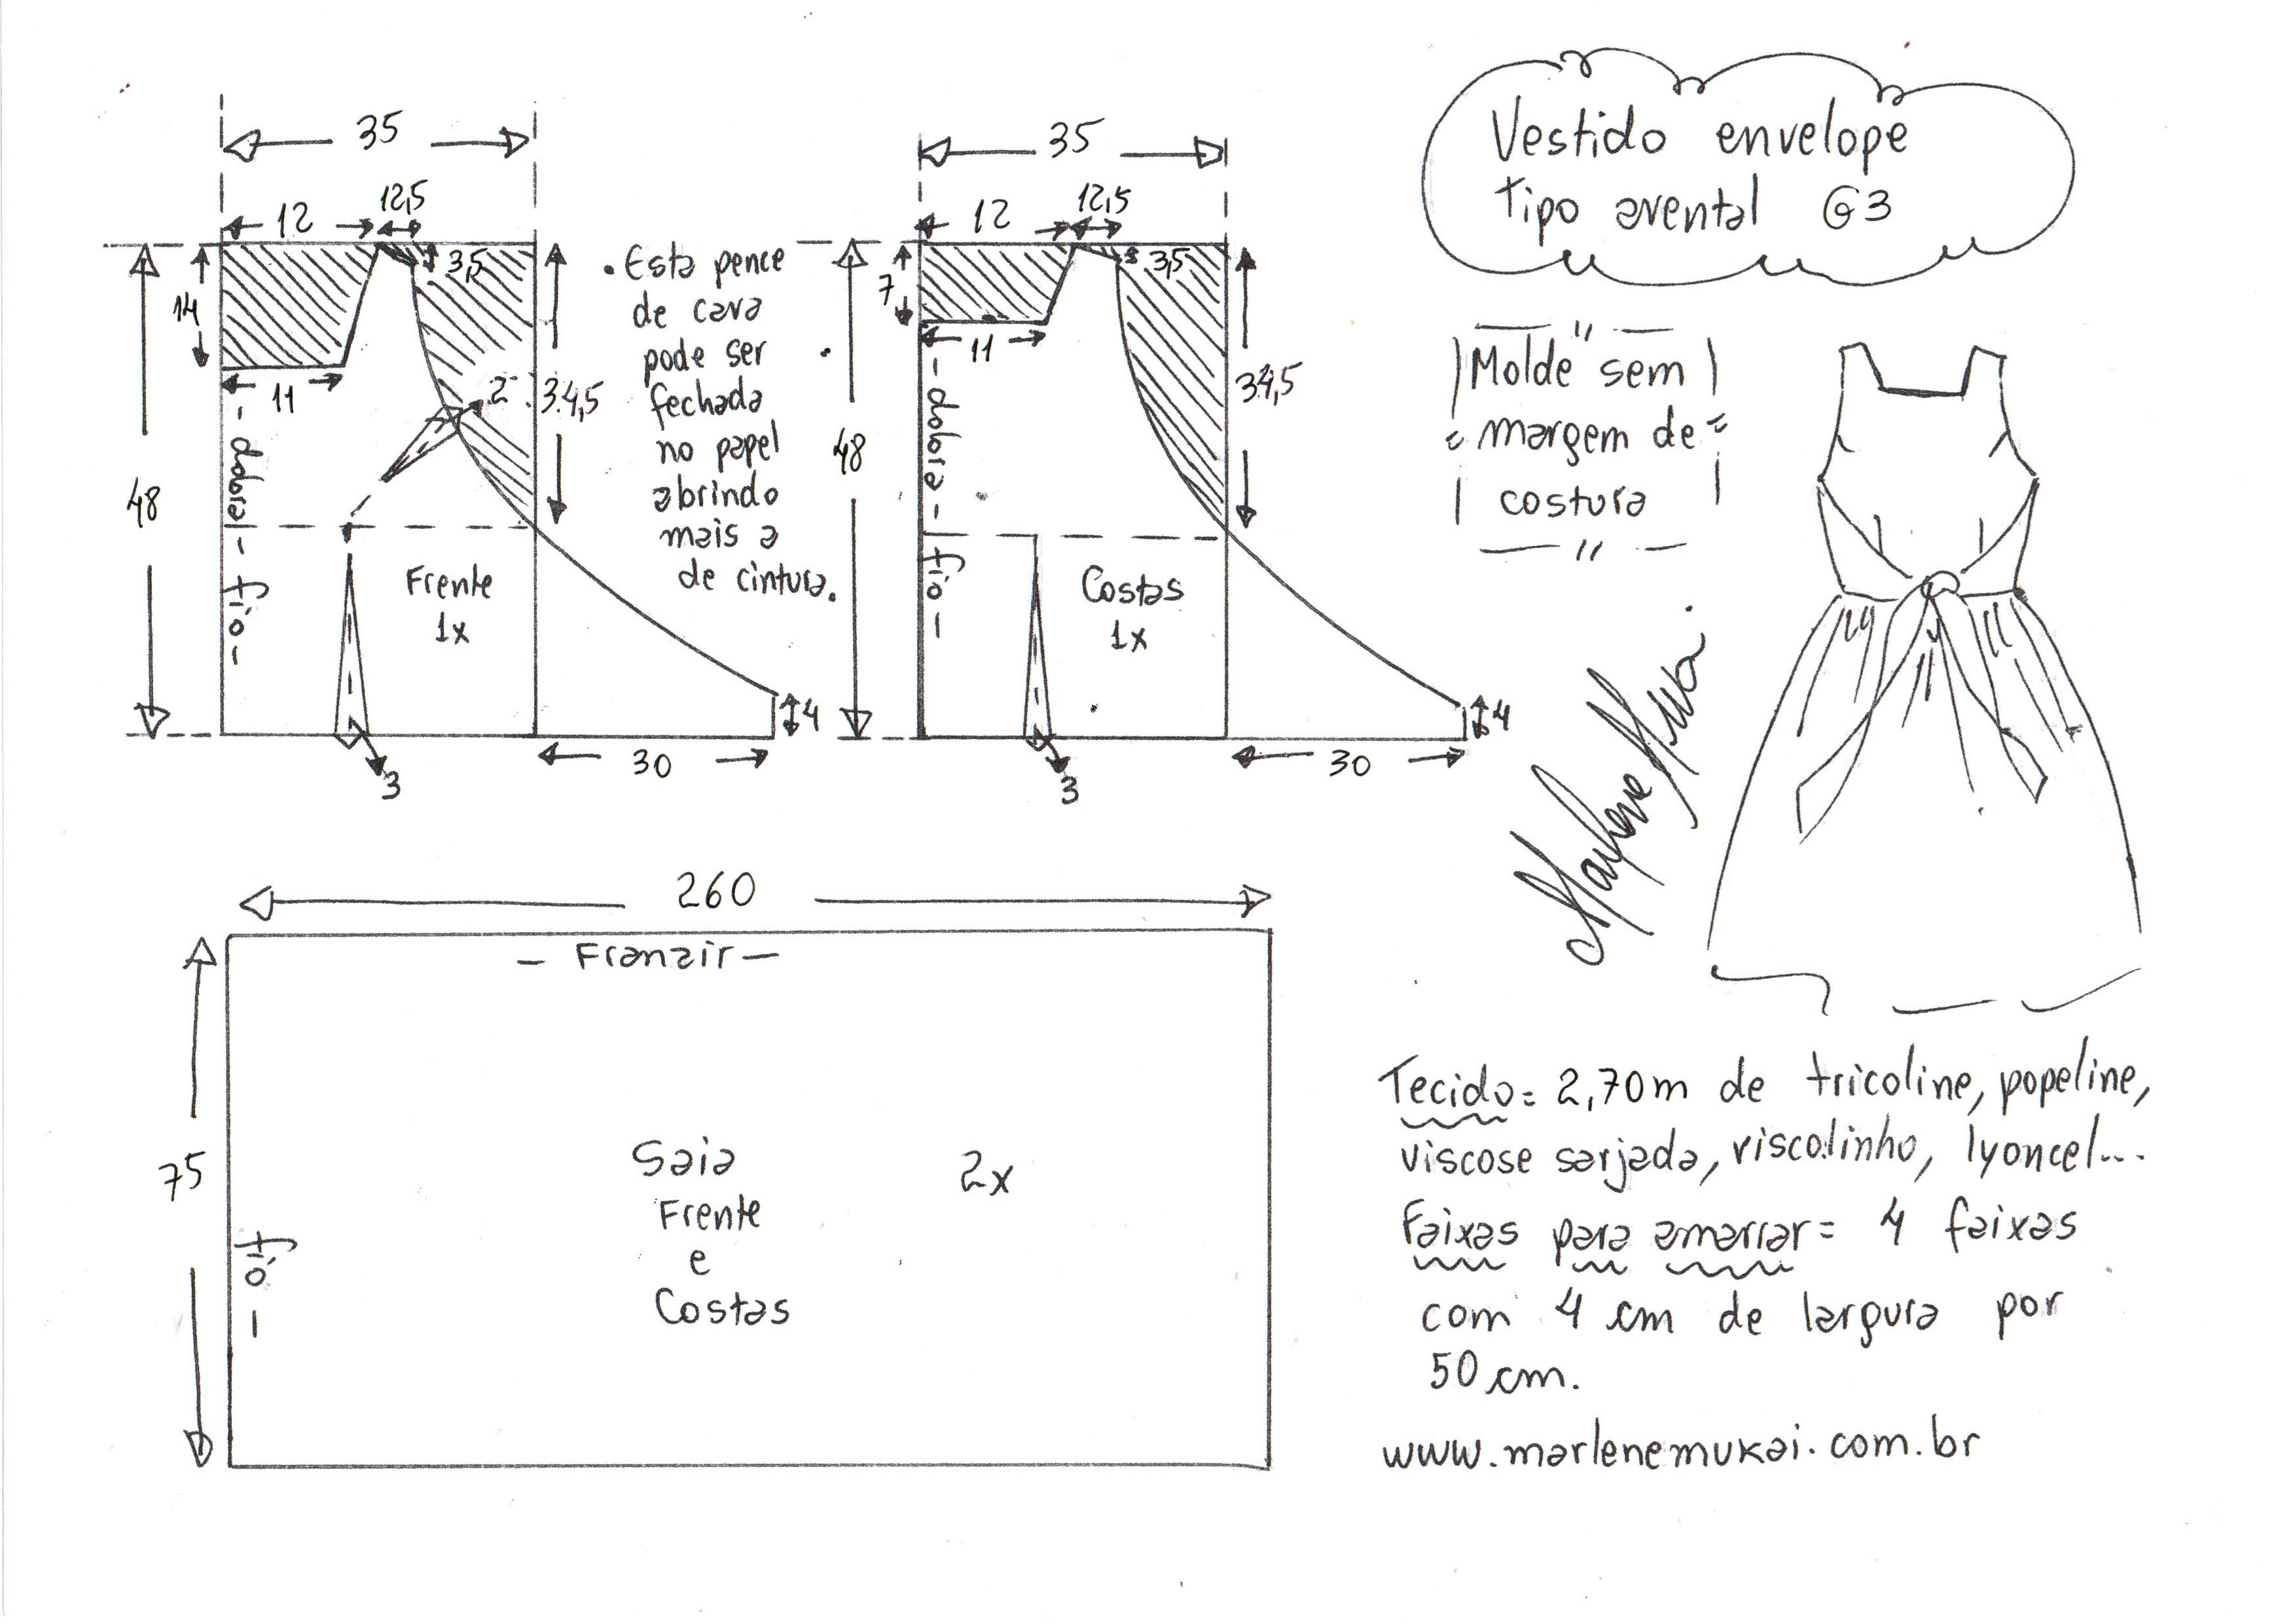 35
12
12,5
3,5
14
11
2
34,5
48
- dobra - fio -
Frente
1x
4
30
3
. Esta pence
de cava
pode ser
fechada
no papel
abrindo
mais a
de cintura.
35
12
12,5
3,5
7
11
34,5
48
- dobra - fio -
Costas
1x
4
30
3
Vestido envelope
Tipo avental G3
Molde sem
margem de
costura
Marlene Mukai.
260
- Franzir -
75
fio -
Saia 2x
Frente
e
Costas
Tecido= 2,70m de tricoline, popeline,
viscose sarjada, viscolinho, lyoncel...
Faixas para amarrar= 4 faixas
com 4 cm de largura por
50 cm.
www.marlenemukai.com.br